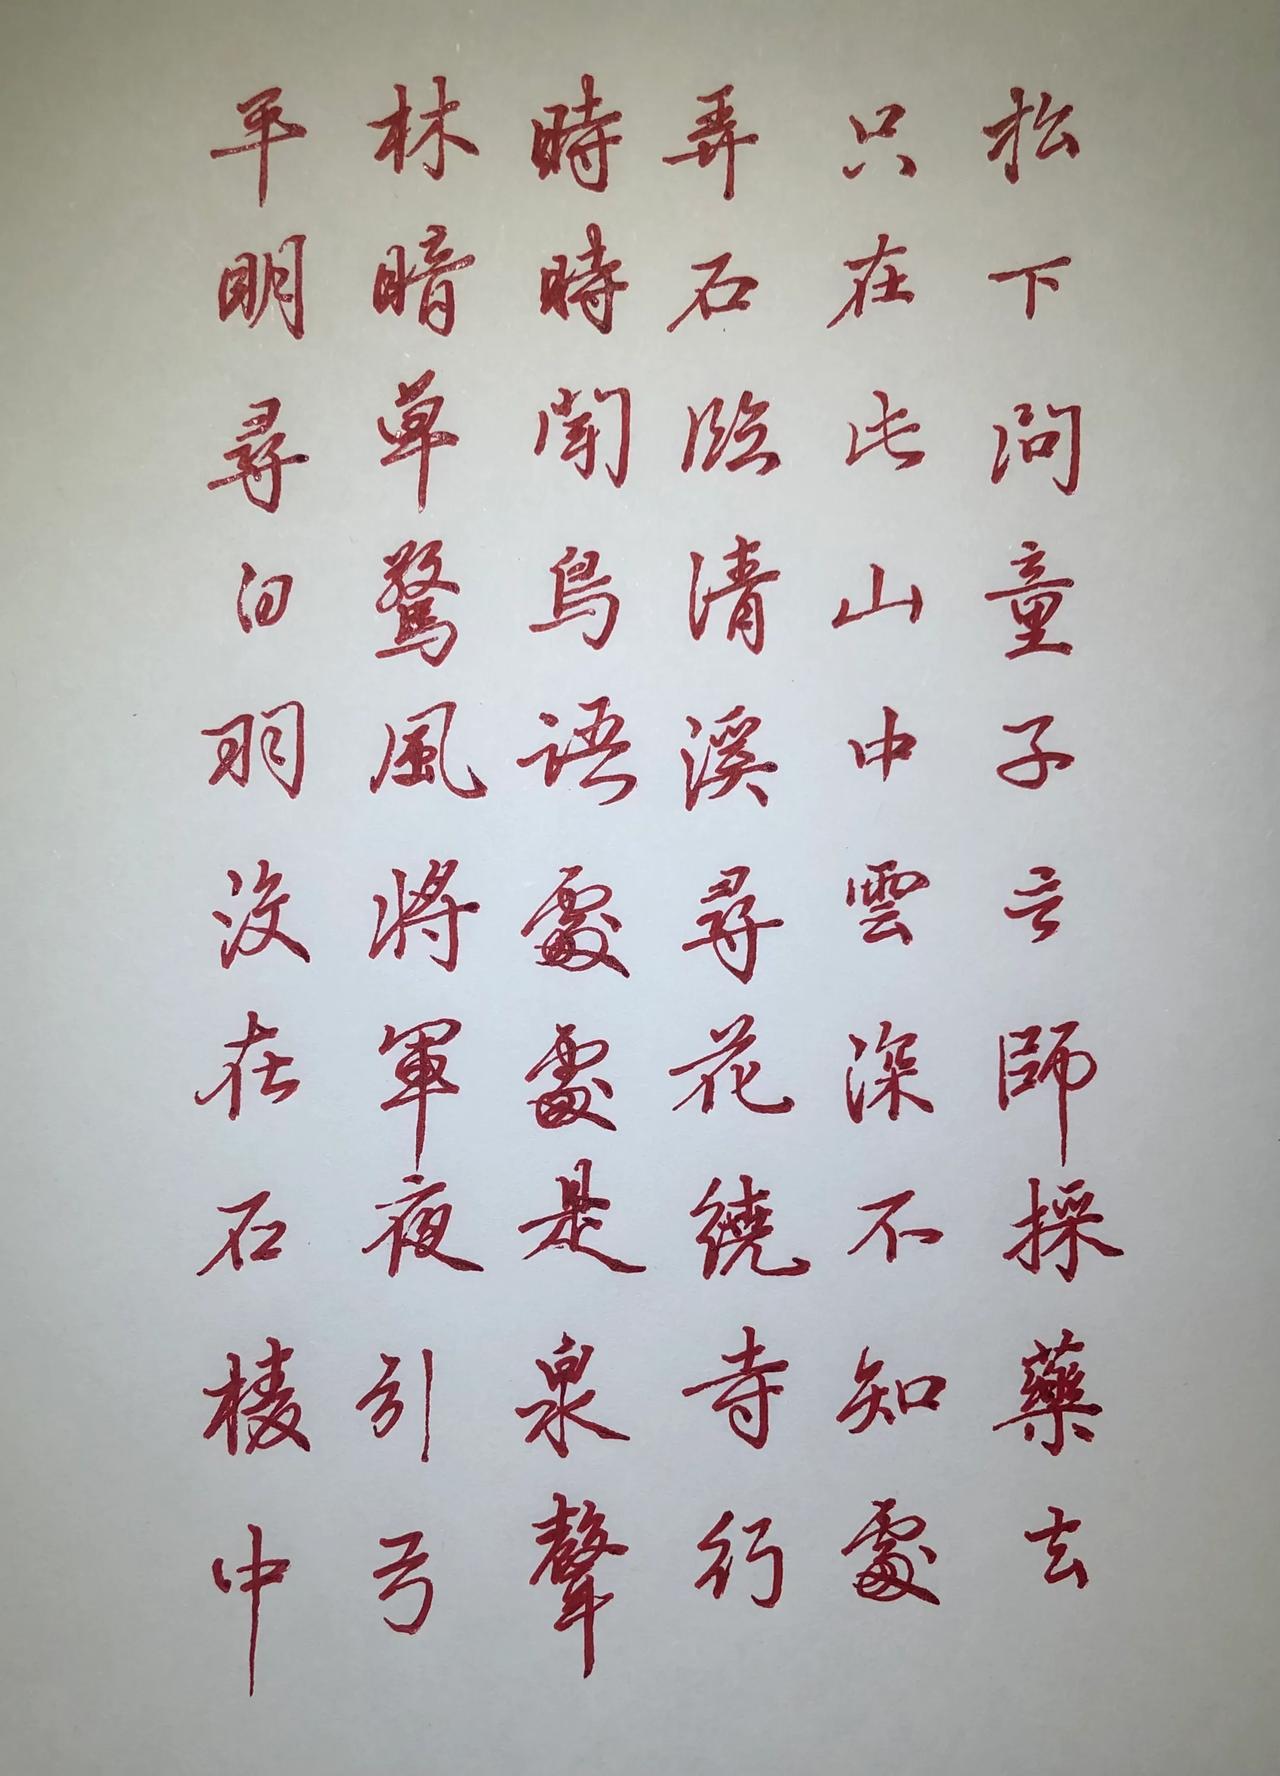 松下問童子言師採藥去
只在此山中雲深不知處
弄石臨清溪尋花繞寺行
時時聞鳥語處處是泉聲
林暗草驚風將軍夜引弓
平明尋白羽沒在石棱中